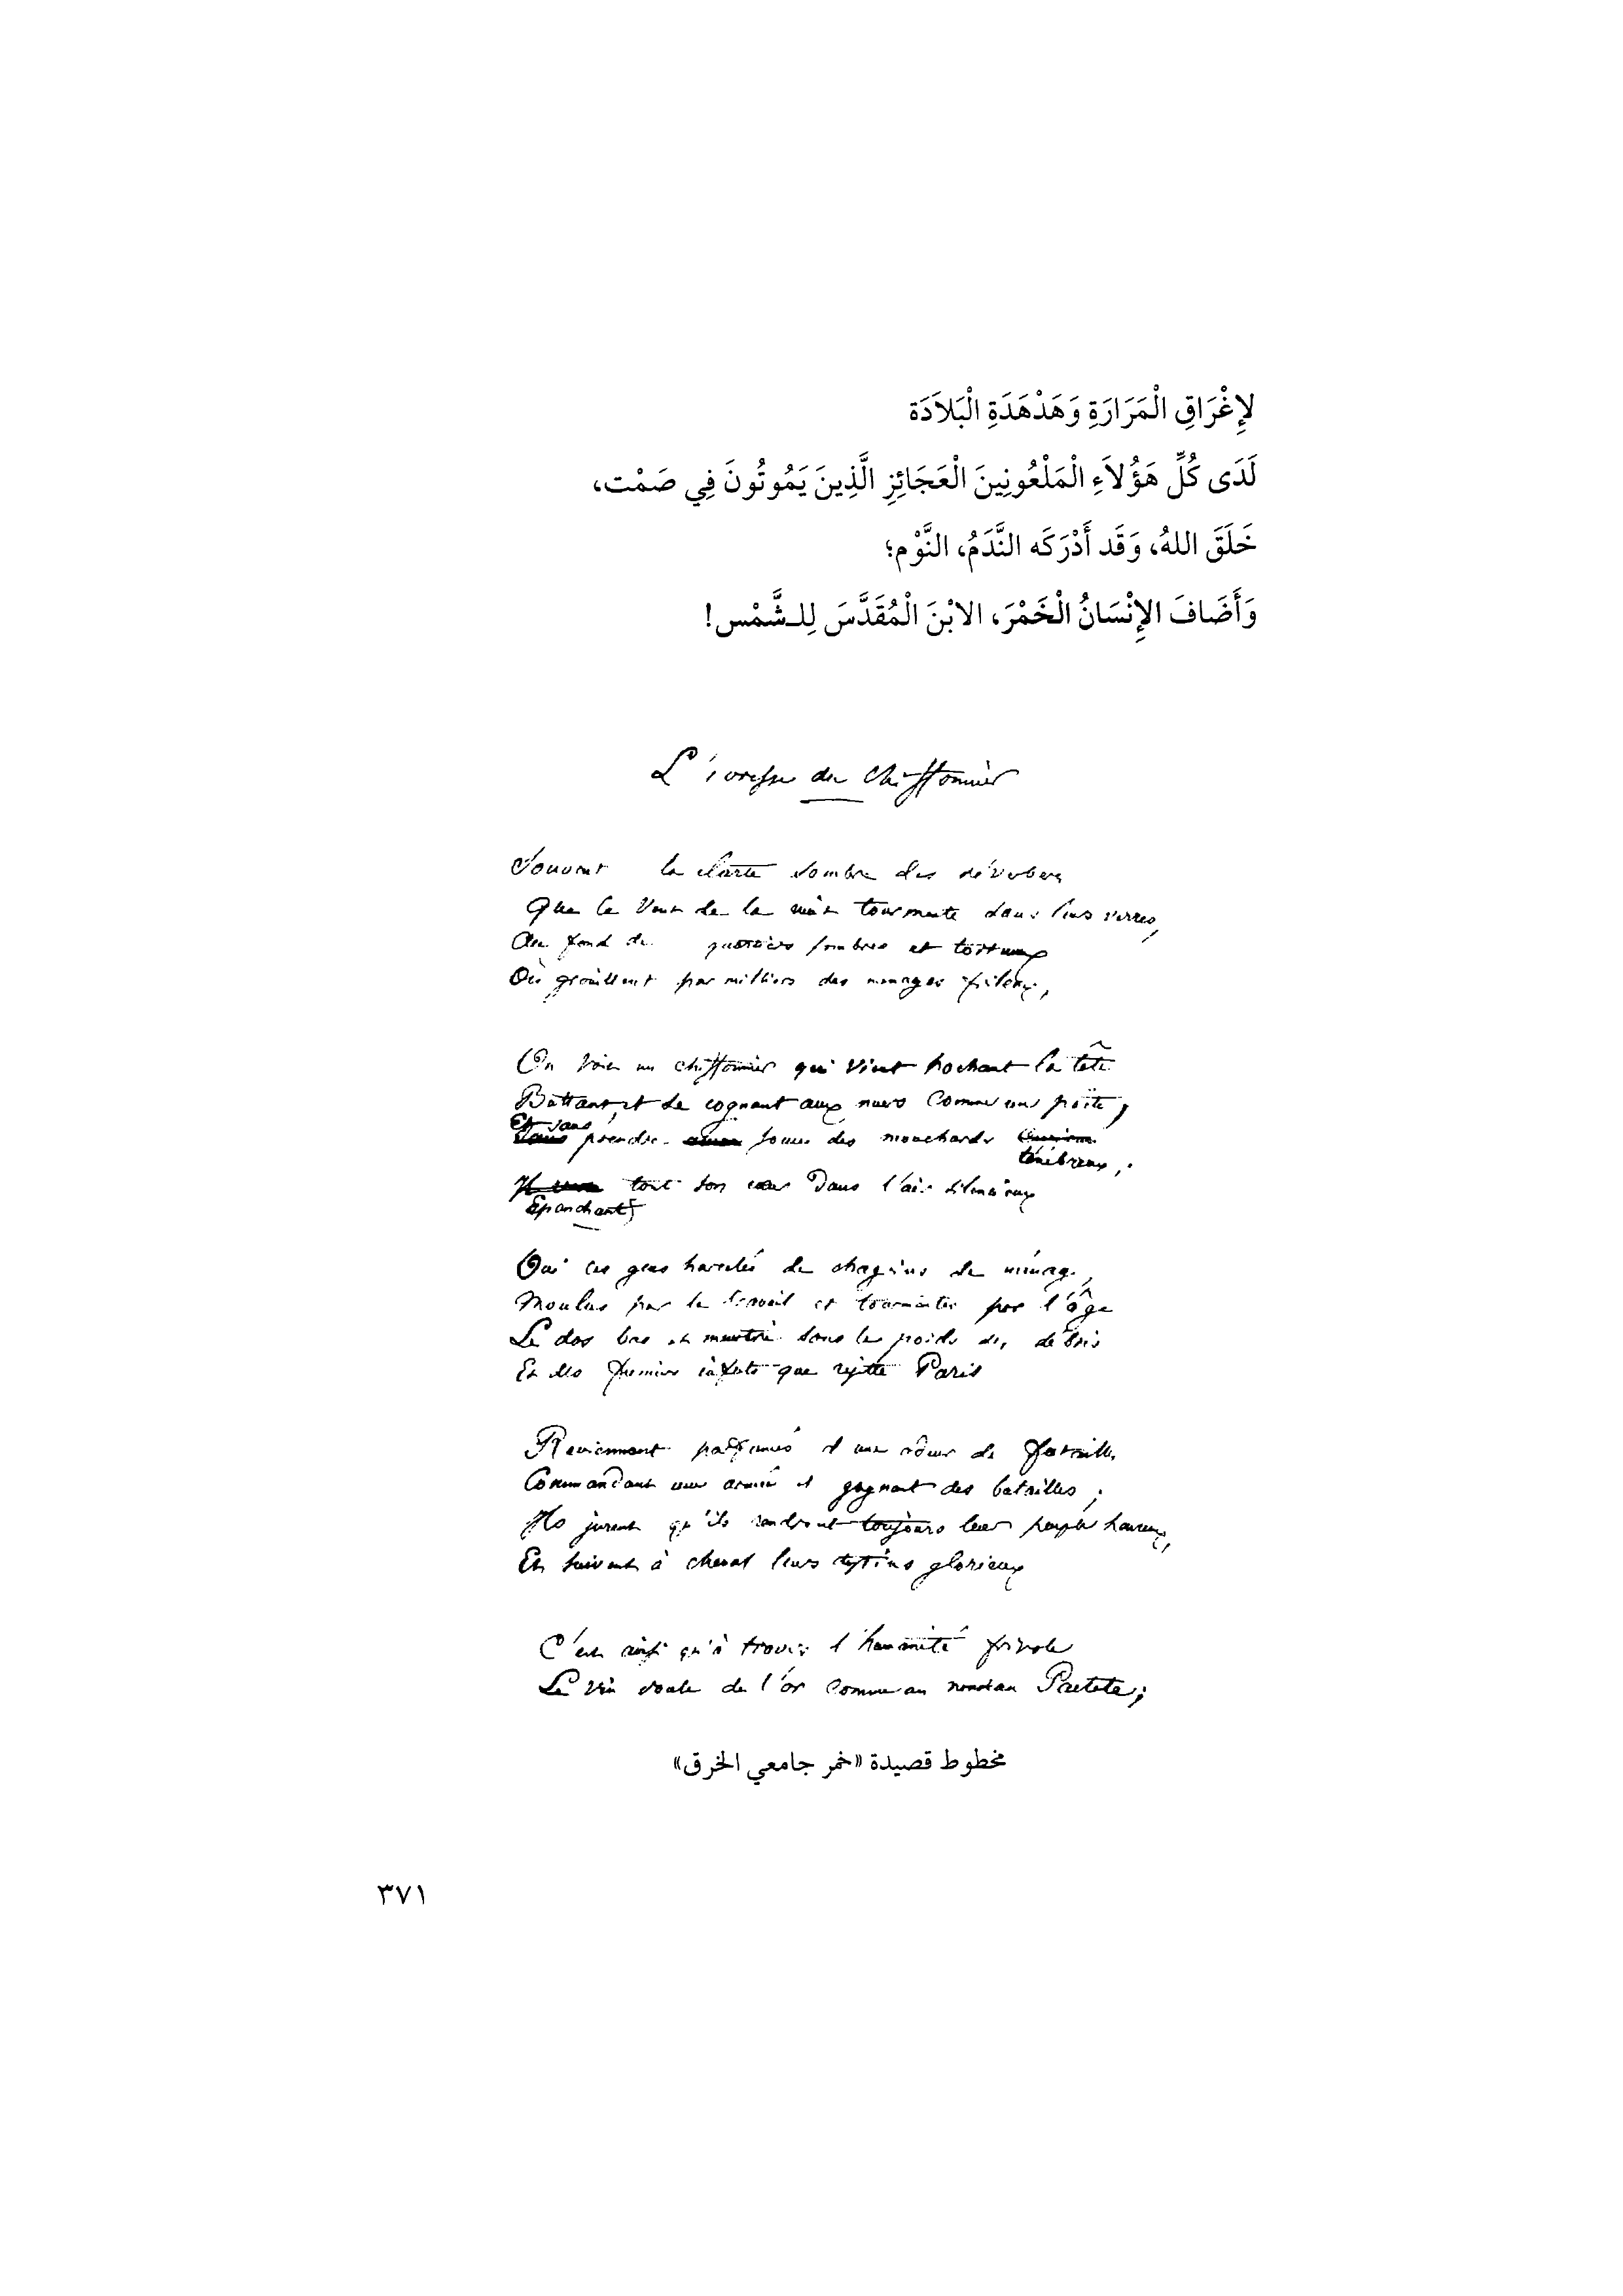 لإِغْرَاقِ الْمَرَارَةِ وَهَدْهَدَةِ الْبَلاَدَة
لَدَى كُلِّ هَؤُلاَءِ الْمَلْعُونِينَ الْعَجَائِزِ الَّذِينَ يَمُوتُونَ فِي صَمْت،
خَلَقَ اللهُ، وَقَد أَدْرَكَه النَّدَمُ، النَّوْم؛
وَأَضَافَ الإِنْسَانُ الْخَمْرَ، الابْنَ الْمُقَدَّسَ لِلـشَّمْس!
L'ivresse du Chiffonnier
Souvent la clarté sombre des réverbères
Que le vent de la nuit tourmente dans leurs verres,
Au fond de quartiers sombres et tortueux
Où grouillent par milliers des ménages frileux,
On voit un chiffonnier qui vient hochant la tête
Buttant, et se cognant aux murs comme un poète,
Et sans
prendre souci des mouchards
ténébreux,
tout son cœur dans l'air silencieux
Épanchant
Oui ces gens harcelés de chagrins de ménage,
Moulus par le travail et tourmentés par l'âge
Le dos bas et meurtri sous le poids des débris
Et des fumiers infects que rejette Paris
Reviennent parfumés d'une odeur de futailles
Commandant une armée et gagnant des batailles ;
Ils jurent qu'ils rendront toujours leur peuple heureux,
Et suivent à cheval leurs destins glorieux
C'est ainsi qu'à travers l'humanité frivole
Le vin roule de l'or comme un nouveau Pactole ;
مخطوط قصيدة «خمر جامعي الخرق»
٣٧١